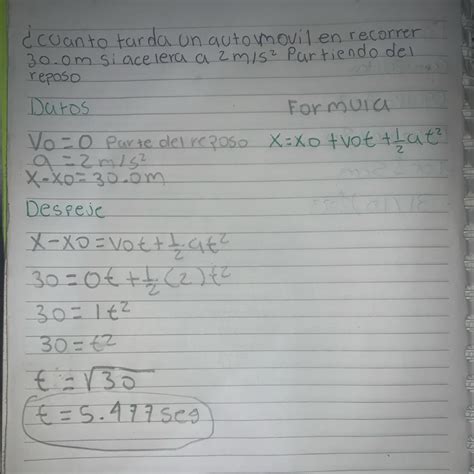 ¿cuanto tarda un automovil en recorrer
30.0m si acelera a 2m/s² Partiendo del
reposo
Datos Formula
Vo=0 Parte del reposo X=XO+vot+½at²
a=2m/s²
X-XO=30.0m
Despeje
X-XO=Vot+½at²
30=0t+½(2)t²
30=1t²
30=t²
t=√30
t=5.477seg